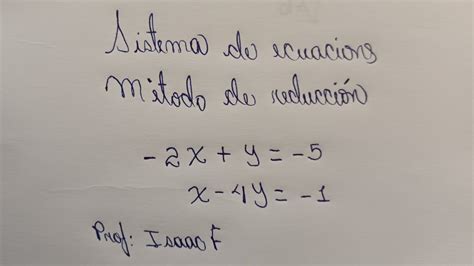 Sistema de ecuacions
Método de reducción
-2x + y = -5
x - 4y = -1
Prof: Isaac F